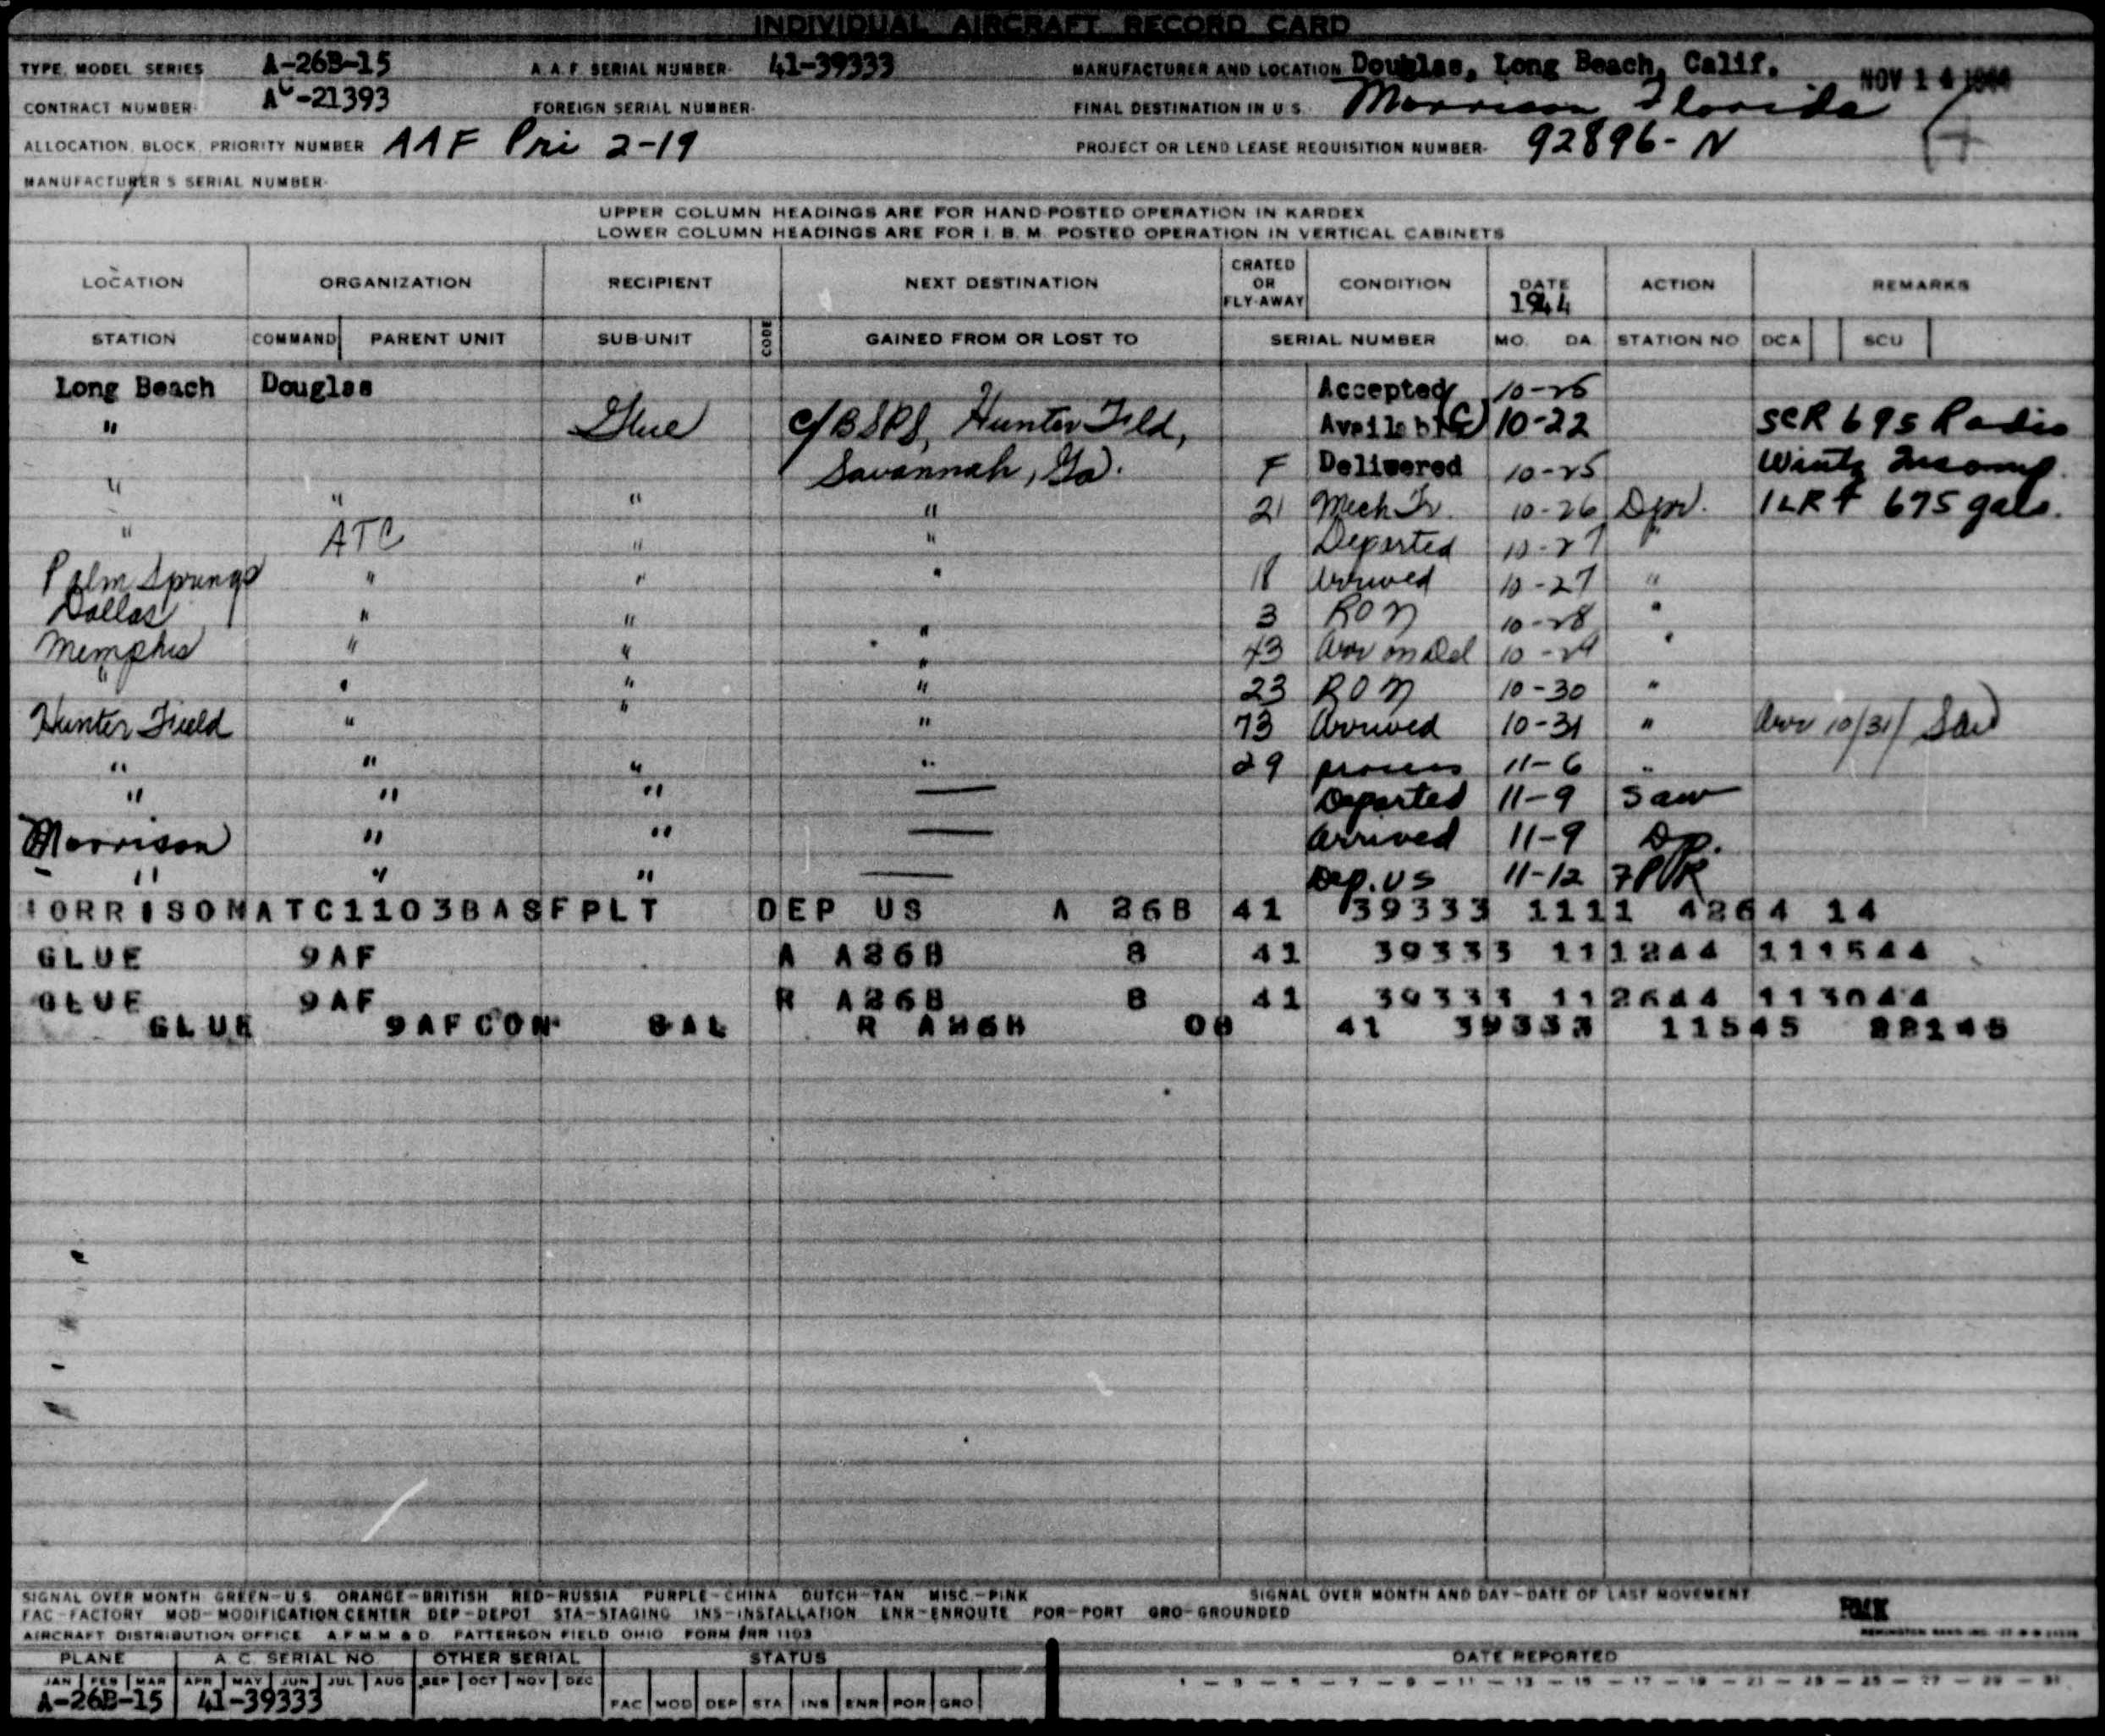 INDIVIDUAL AIRCRAFT RECORD CARD
TYPE, MODEL, SERIES A-26B-15 A.A.F. SERIAL NUMBER- 41-39333 MANUFACTURER AND LOCATION Douglas, Long Beach, Calif. NOV 14 1944
CONTRACT NUMBER- AC-21393 FOREIGN SERIAL NUMBER- FINAL DESTINATION IN U.S. Morrison Florida
ALLOCATION, BLOCK, PRIORITY NUMBER AAF Pri 2-19 PROJECT OR LEND LEASE REQUISITION NUMBER- 92896-N
MANUFACTURER'S SERIAL NUMBER-
UPPER COLUMN HEADINGS ARE FOR HAND-POSTED OPERATION IN KARDEX
LOWER COLUMN HEADINGS ARE FOR I. B. M. POSTED OPERATION IN VERTICAL CABINETS
LOCATION ORGANIZATION RECIPIENT NEXT DESTINATION CRATED OR FLY-AWAY CONDITION DATE 1944 ACTION REMARKS
STATION COMMAND PARENT UNIT SUB-UNIT CODE GAINED FROM OR LOST TO SERIAL NUMBER MO. DA. STATION NO DCA SCU
Long Beach Douglas Accepted 10-25
" Glue c/BSPS, Hunter Fild, Available (C) 10-22 SCR 695 Radio
Savannah, Ga. F Delivered 10-25
" " " " 21 Mech Tr. 10-26 Dpr. 1LRT 675 gals.
" ATC " " Departed 10-27 "
Palm Springs " " " 18 Arrived 10-27 "
Dallas " " " 3 RON 10-28 "
Memphis " " " 43 Arr on Del 10-29 "
" " " " 23 RON 10-30 "
Hunter Field " " " 73 Arrived 10-31 " Arr 10/31/ Sav
" " " " 29 process 11-6 "
" " " — Departed 11-9 Saw
Morrison " " — Arrived 11-9 Dp.
" " " — Dep. US 11-12
MORRISONATC1103BASFPLT DEP US A 26B 41 39333 1111 4264 14
GLUE 9AF A A26B 8 41 39333 111244 111544
GLUE 9AF R A26B 8 41 39333 112644 113044
GLUE 9AFCON SAL R A26B 08 41 39333 11545 22145
SIGNAL OVER MONTH GREEN-U.S. ORANGE-BRITISH RED-RUSSIA PURPLE-CHINA DUTCH-TAN MISC.-PINK SIGNAL OVER MONTH AND DAY-DATE OF LAST MOVEMENT
FAC-FACTORY MOD-MODIFICATION CENTER DEP-DEPOT STA-STAGING INS-INSTALLATION ENR-ENROUTE POR-PORT GRO-GROUNDED
AIRCRAFT DISTRIBUTION OFFICE A.F.M.M & D. PATTERSON FIELD OHIO FORM 1103
PLANE A.C. SERIAL NO. OTHER SERIAL STATUS DATE REPORTED
JAN FEB MAR APR MAY JUN JUL AUG SEP OCT NOV DEC
1 - 3 - 5 - 7 - 9 - 11 - 13 - 15 - 17 - 19 - 21 - 23 - 25 - 27 - 29 - 31
A-26B-15 41-39333 FAC MOD DEP STA INS ENR POR GRO